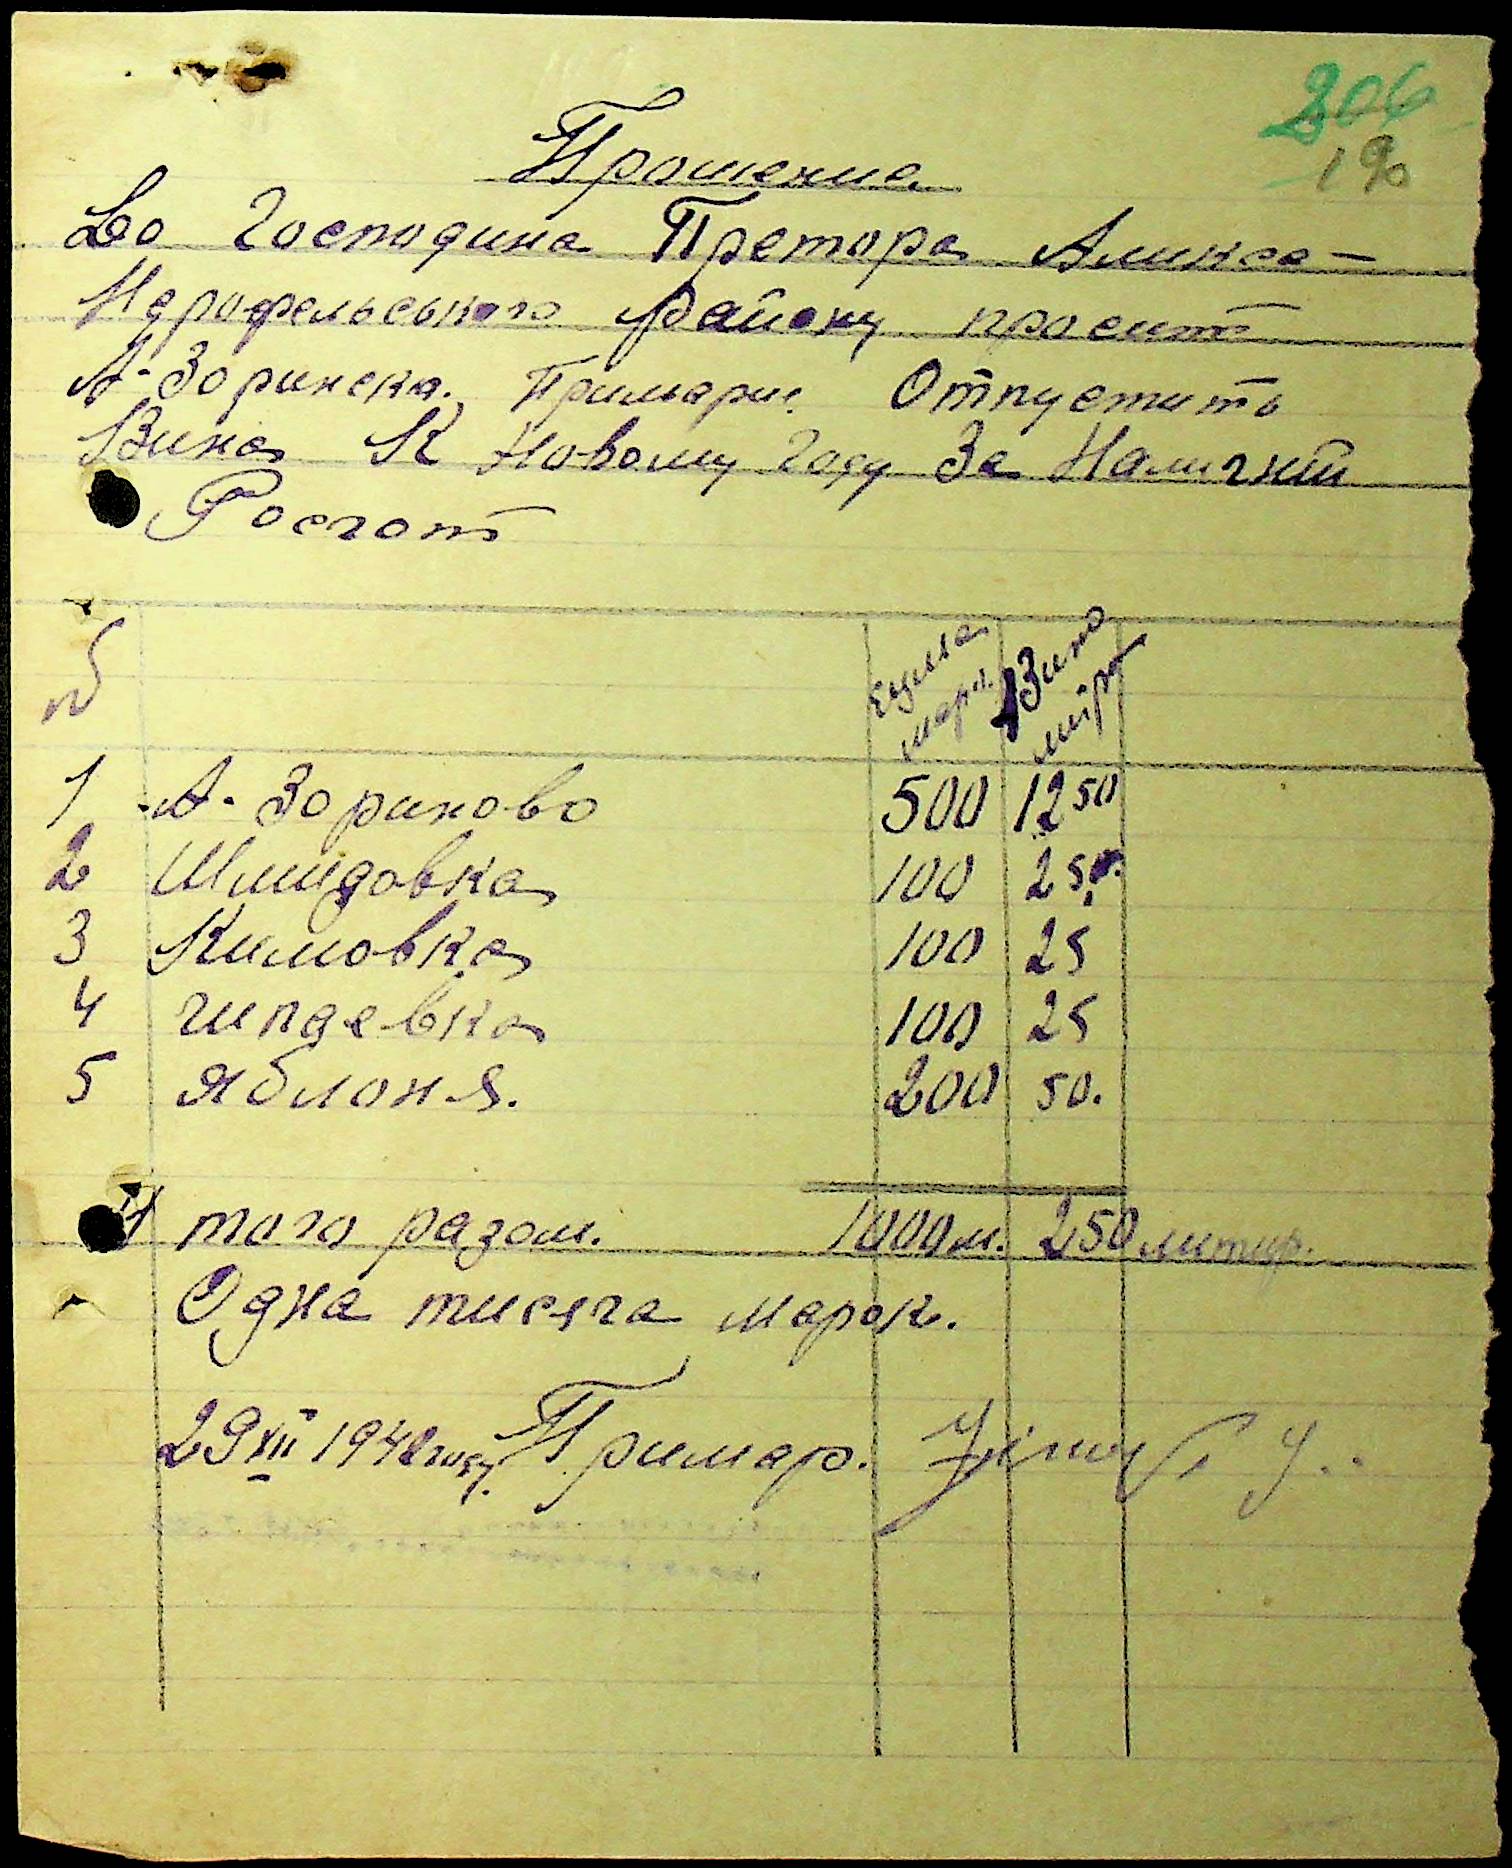 206
190
Прошение
До Господина Претора Аликса-
Ндрофельського Району просить
А-Зоринска. Примария. Отпустить
Вина К Новому Году За Наличний
Росчот
№ Сумма марк. Вино литр
1 А-Зориново 500 12 50
2 Шмидовка 100 25
3 Климовка 100 25
4 чипаевка 100 25
5 яблоня. 200 50.
И того разом. 1000м. 250 литир.
Одна тисяча марок.
29 XII 1942 году. Примар.